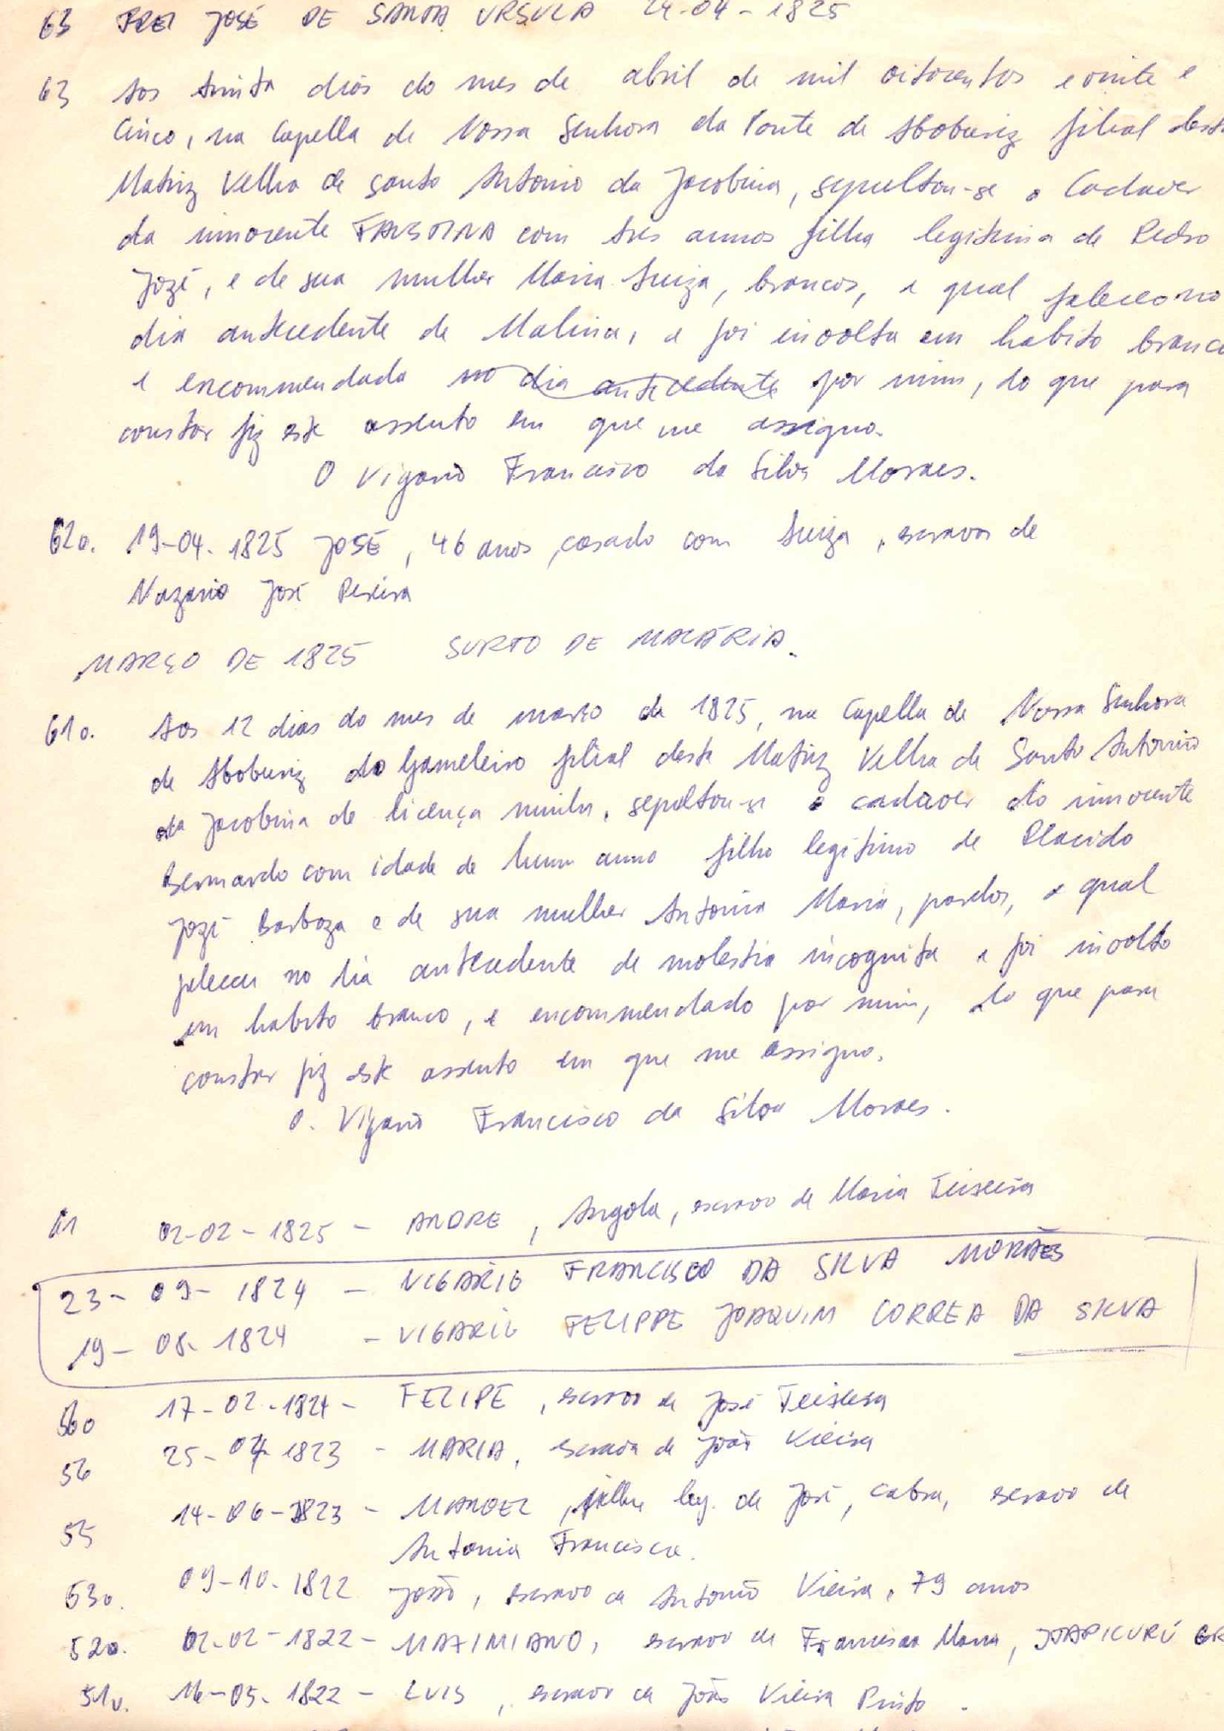 63 FREI JOSÉ DE SANTA URSULA 24-04-1825
63 Aos trinta dias do mes de abril de mil oitocentos e vinte e
Cinco, na Capella de Nossa Senhora da Ponte de Itoberiz filial desta
Matriz Velha de Santo Antonio da Jacobina, sepultou-se o Cadaver
da innocente FAUSTINA com tres annos filha legitima de Pedro
Jozé, e de sua mulher Maria Luiza, brancos, a qual faleceo no
dia antecedente de Malina, e foi involta em habito branco
e encommendada no dia antecedente por mim, do que para
constar fiz este assento em que me assigno.
O Vigario Francisco da Silva Moraes.
62v. 19-04-1825 JOSÉ, 46 anos, casado com Luiza, escravos de
Nazario José Pereira
MARÇO DE 1825 SURTO DE MALÁRIA.
61v. Aos 12 dias do mes de março de 1825, na Capella de Nossa Senhora
de do Gameleiro filial desta Matriz Velha de Santo Antonio
da Jacobina de licença minha, sepultou-se o cadaver do innocente
Bernardo com idade de hum anno filho legitimo de Placido
Jozé Barboza e de sua mulher Antonia Maria, pardos, o qual
faleceu no dia antecedente de molestia incognita e foi involto
em habito branco, e encommendado por mim, do que para
constar fiz este assento em que me assigno.
O. Vigario Francisco da Silva Moraes.
61 02-02-1825 - ANDRE, Angola, escravo de Maria Teixeira
23-09-1824 - VIGÁRIO FRANCISCO DA SILVA MORÃES
19-08-1824 - VIGARIO FELIPPE JOAQUIM CORREA DA SILVA
56v 17-02-1824 - FELIPE, escravo de José Teixeira
56 25-07-1823 - MARIA, escrava de João Vieira
55 14-06-1823 - MANOEL, filho leg. de José, Cabra, escravo de
Antonia Francisca.
53v. 09-10-1822 João, escravo de Antonio Vieira, 79 anos
52v. 02-02-1822 - MAXIMIANO, escravo de Francisca Maria, ITAPICURÚ GR
51v. 16-05-1822 - LUIS, escravo de João Vieira Pinto.